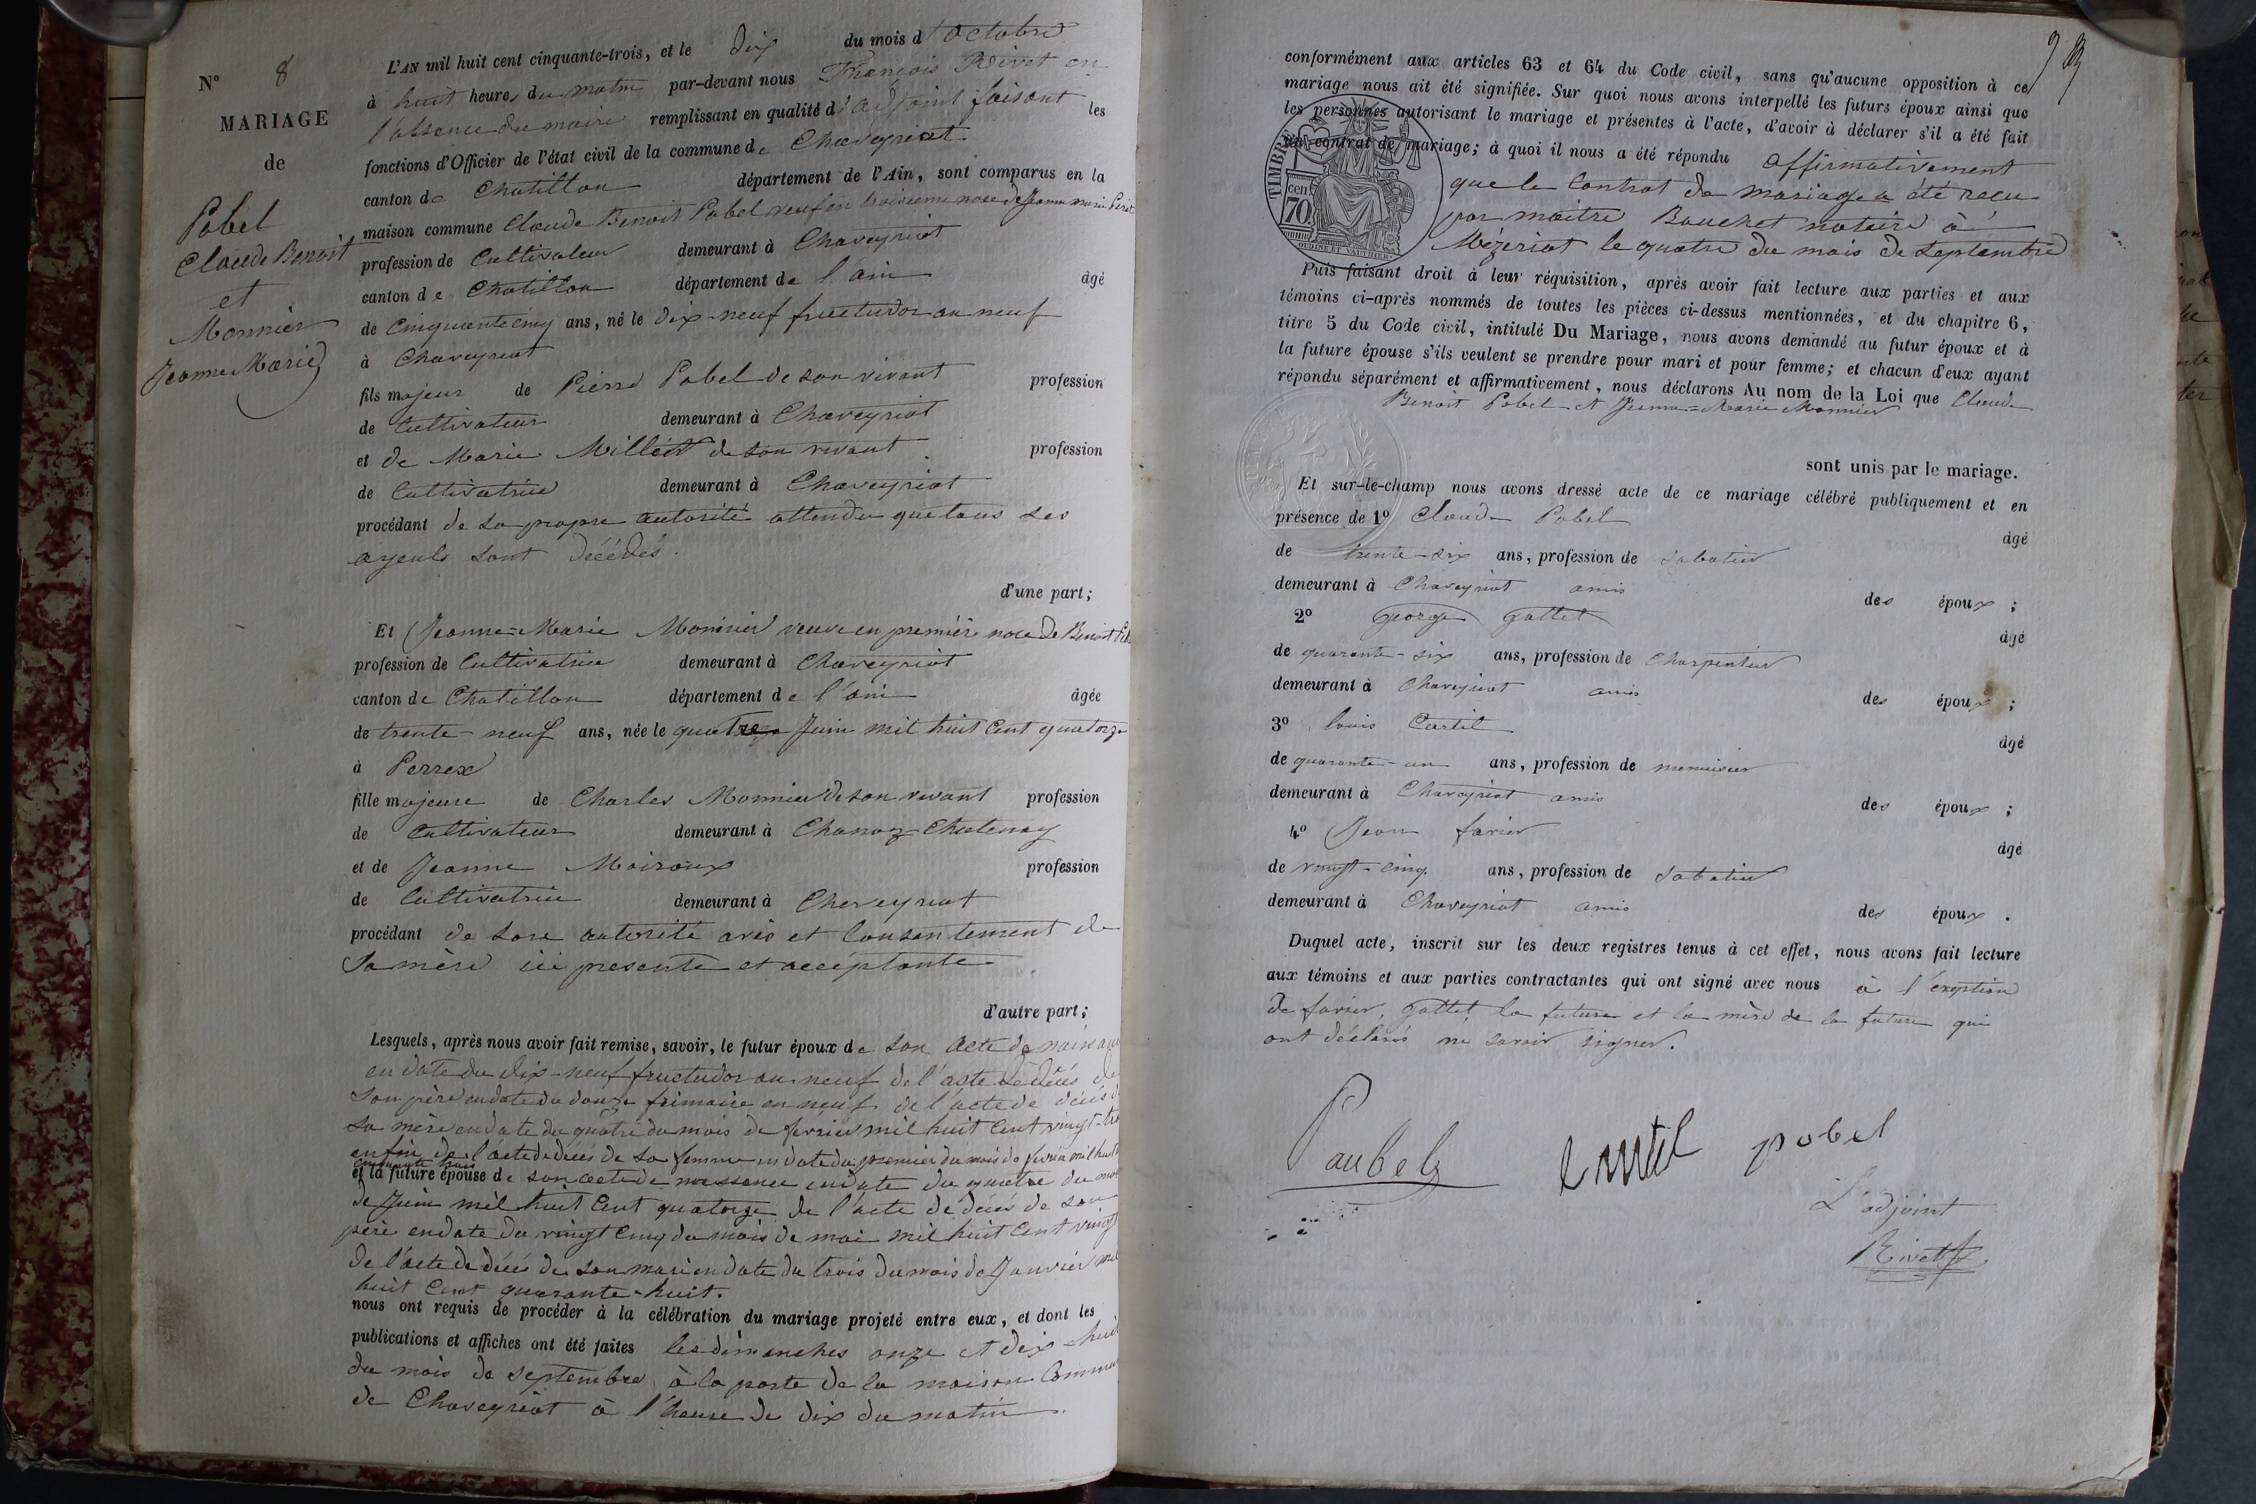 N° 8
MARIAGE
de
Pobel
Claude Benoit
et
Monnier
Jeanne Marie
L'AN mil huit cent cinquante-trois, et le dix du mois d'octobre
à huit heures du matin par-devant nous François Rivet en
l'absence du maire remplissant en qualité d'adjoint faisant les
fonctions d'Officier de l'état civil de la commune de Chaveyriat
canton de Chatillon département de l'Ain, sont comparus en la
maison commune Claude Benoit Pobel veuf en troisieme noce de Jeanne marie
profession de Cultivateur demeurant à Chaveyriat
canton de Chatillon département de l'ain âgé
de Cinquante cinq ans, né le dix-neuf fructudor an neuf
à Chaveyriat
fils majeur de Pierre Pobel de son vivant profession
de Cultivateur demeurant à Chaveyriat
et de Marie Millet de son vivant profession
de Cultivatrice demeurant à Chaveyriat
procédant de sa propre autorité attendu que tous ses
ayeuls sont décédés.
d'une part;
Et Jeanne=Marie Monnier veuve en première noce de Benoit
profession de Cultivatrice demeurant à Chaveyriat
canton de Chatillon département de l'ain âgée
de trente-neuf ans, née le quatre Juin mil huit Cent quatorze
à Perrex
fille majeure de Charles Monnier de son vivant profession
de Cultivateur demeurant à Chanoz Chatenay
et de Jeanne Moiroux profession
de Cultivatrice demeurant à Chaveyriat
procédant de son autorité avis et Consentement de
Sa mère ici presente et acceptante
d'autre part;
Lesquels, après nous avoir fait remise, savoir, le futur époux de son acte de
en date du dix-neuf fructudor an neuf de l'acte de décés de
Son père en date du douze frimaire an neuf de l'acte de décés
sa mère en date du quatre du mois de fevrier mil huit Cent vingt
enfin de l'acte de décés de sa femme en date du premier du mois de
cinquante trois
et la future épouse de son acte de naissance en date du quatre du mois
de Juin mil huit Cent quatorze de l'acte de décés de son
père en date du vingt Cinq du mois de mai mil huit Cent vingt
de l'acte de décés de son mari en date du trois du mois de Janvier mil
huit Cent quarante-huit.
nous ont requis de procéder à la célébration du mariage projeté entre eux, et dont les
publications et affiches ont été faites les dimanches onze et dix-huit
du mois de septembre à la porte de la maison Commune
de Chaveyriat à l'heure de dix du matin.
conformément aux articles 63 et 64 du Code civil, sans qu'aucune opposition à ce
mariage nous ait été signifiée. Sur quoi nous avons interpellé les futurs époux ainsi que
les personnes autorisant le mariage et présentes à l'acte, d'avoir à déclarer s'il a été fait
un contrat de mariage; à quoi il nous a été répondu affirmativement
TIMBRE
cen
70
que le Contrat de mariage a été reçu
par maître Bouchet notaire à
Mézeriat le quatre du mois de Septembre
Puis faisant droit à leur réquisition, après avoir fait lecture aux parties et aux
témoins ci-après nommés de toutes les pièces ci-dessus mentionnées, et du chapitre 6,
titre 5 du Code civil, intitulé Du Mariage, nous avons demandé au futur époux et à
la future épouse s'ils veulent se prendre pour mari et pour femme; et chacun d'eux ayant
répondu séparément et affirmativement, nous déclarons Au nom de la Loi que Claude
Benoit Pobel et Jeanne=Marie Monnier
sont unis par le mariage.
Et sur-le-champ nous avons dressé acte de ce mariage célébré publiquement et en
présence de 1° Claude Pobel âgé
de trente-six ans, profession de sabotier
demeurant à Chaveyriat amis des époux;
2° george gattet âgé
de quarante-six ans, profession de Charpentier
demeurant à Chaveyriat amis des époux;
3° louis Curtil âgé
de quarante-un ans, profession de menuisier
demeurant à Chaveyriat amis des époux;
4° Jean favier âgé
de vingt-cinq ans, profession de Sabotier
demeurant à Chaveyriat amis des époux.
Duquel acte, inscrit sur les deux registres tenus à cet effet, nous avons fait lecture
aux témoins et aux parties contractantes qui ont signé avec nous à l'exeption
de favier, gattet la future et la mère de la future qui
ont déclarés ne savoir signer.
Paubel
Curtil
pobel
L'adjoint
Rivet